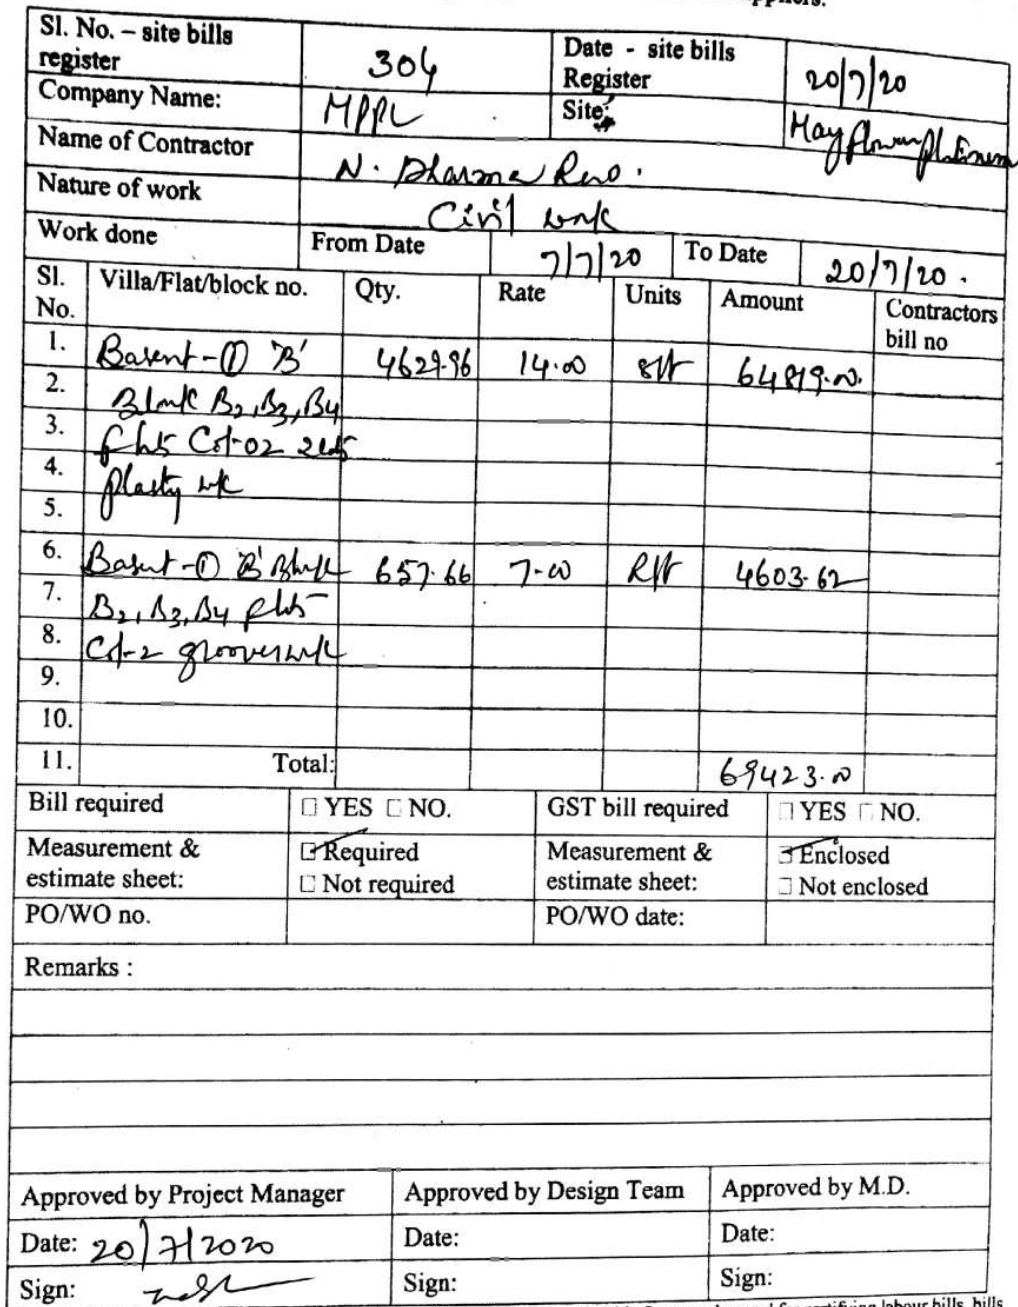 Sl. No. – site bills register 304 Date - site bills Register 20/7/20
Company Name: MPPL Site: Mayflower Platinum
Name of Contractor N. Dharma Rao.
Nature of work Civil work
Work done From Date 7/7/20 To Date 20/7/20.
Sl. No. Villa/Flat/block no. Qty. Rate Units Amount Contractors bill no
1. Basent-① 'B' 4629.96 14.00 sft 64819.00.
2. Block B2, B3, B4
3. flats Cot-02
4. plasty wk
5.
6. Basent-① 'B' Block 657.66 7-00 Rft 4603.62
7. B2, B3, B4 flats
8. Cot-2 grooves wk
9.
10.
11. Total: 69423.00
Bill required YES NO. GST bill required YES NO.
Measurement & estimate sheet: Required Measurement & estimate sheet: Enclosed
Not required Not enclosed
PO/WO no. PO/WO date:
Remarks :
Approved by Project Manager Approved by Design Team Approved by M.D.
Date: 20/7/2020 Date: Date:
Sign: Sign: Sign:
labour bills, bills